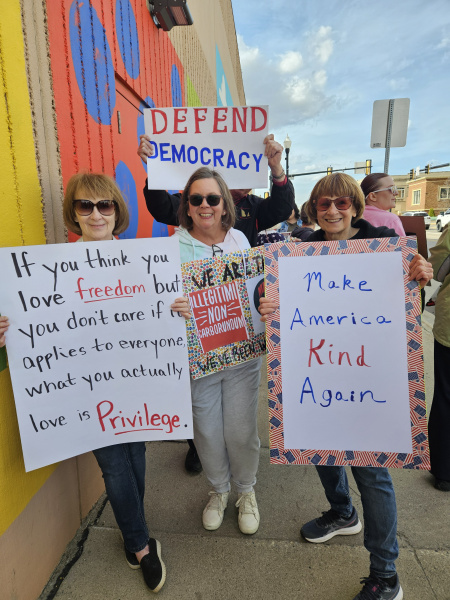 DEFEND
DEMOCRACY
If you think you
love freedom but
you don't care if it
applies to everyone,
what you actually
love is Privilege.
WE ARE
ILLEGITIMI
NON
CARBORUNDUM
WE'VE BEEN
Make
America
Kind
Again